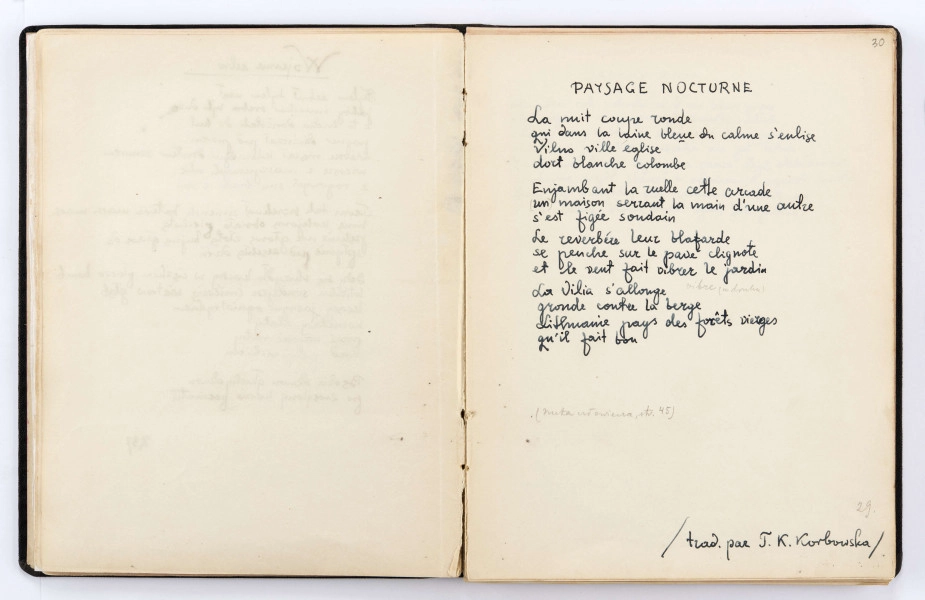 30
PAYSAGE NOCTURNE
La nuit coupe ronde
qui dans la laine bleue du calme s'enlise
Vilno ville église
dort blanche colombe
Enjambant la ruelle cette arcade
un maison serrant la main d'une autre
s'est figée soudain
Le reverbére leur blafarde
se penche sur le pavé clignote
et le vent fait vibrer le jardin
La Vilia s'allonge
gronde contre la berge
Lithuanie pays des forêts vierges
qu'il fait bon
str. 45)
29.
/trad. par T. K. Korbowska/